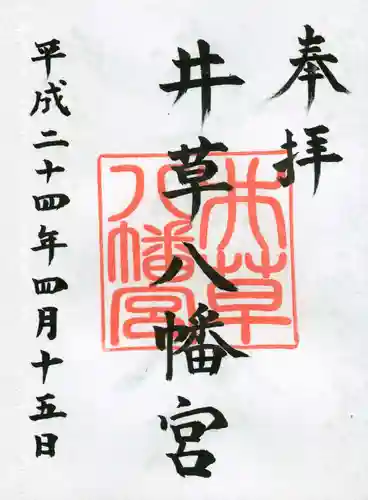 奉拝
井草八幡宮
井草八幡宮
平成二十四年四月十五日